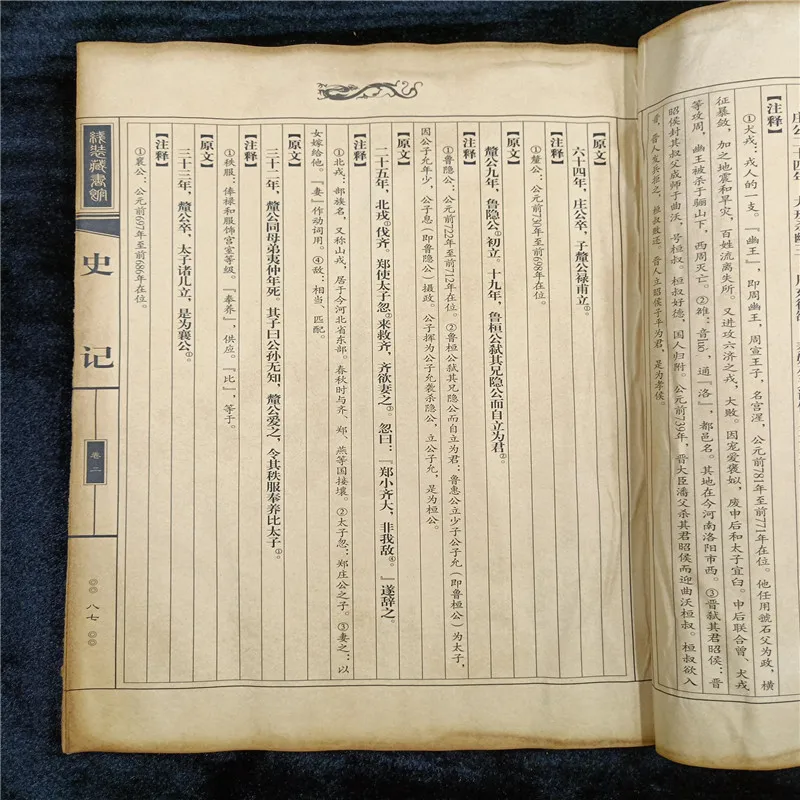 【注释】
①犬戎：戎人的一支。『幽王』，即周幽王，周宣王子，名宫湦，公元前781年至前771年在位。他任用虢石父为政，横
征暴敛，加之地震和旱灾，百姓流离失所。又进攻六济之戎，大败。因宠爱褒姒，废申后和太子宜臼。申后联合曾、犬戎
等攻周，幽王被杀于骊山下，西周灭亡。②雒：音luò，通『洛』，都邑名。其地在今河南洛阳市西。③晋弑其君昭侯：晋
昭侯封其叔父成师于曲沃，号桓叔。桓叔好德，国人归附。公元前739年，晋大臣潘父杀其君昭侯而迎曲沃桓叔。桓叔欲入
晋，晋人发兵拒之，桓叔败还。晋人立昭侯子平为君，是为孝侯。
【原文】
六十四年，庄公卒，子釐公禄甫立①。
【注释】
①釐公：公元前730年至前698年在位。
釐公九年，鲁隐公①初立。十九年，鲁桓公弑其兄隐公而自立为君②。
【注释】
①鲁隐公：公元前722年至前712年在位。②鲁桓公弑其兄隐公而自立为君：鲁惠公立少子公子允（即鲁桓公）为太子，
因公子允年少，公子息（即鲁隐公）摄政。公子挥为公子允袭杀隐公，立公子允，是为桓公。
【原文】
二十五年，北戎①伐齐。郑使太子忽②来救齐，齐欲妻之③。忽曰：『郑小齐大，非我敌④。』遂辞之。
【注释】
①北戎：部族名，又称山戎，居于今河北省东部。春秋时与齐、郑、燕等国接壤。②太子忽：郑庄公之子。③妻之：以
女嫁给他。『妻』作动词用。④敌：相当、匹配。
【原文】
三十二年，釐公同母弟夷仲年死。其子曰公孙无知，釐公爱之，令其秩服奉养比太子①。
【注释】
①秩服：俸禄和服饰宫室等级。『奉养』，供应。『比』，等于。
【原文】
三十三年，釐公卒，太子诸儿立，是为襄公①。
【注释】
①襄公：公元前697年至前686年在位。
线装藏书馆
史记
卷二
八七